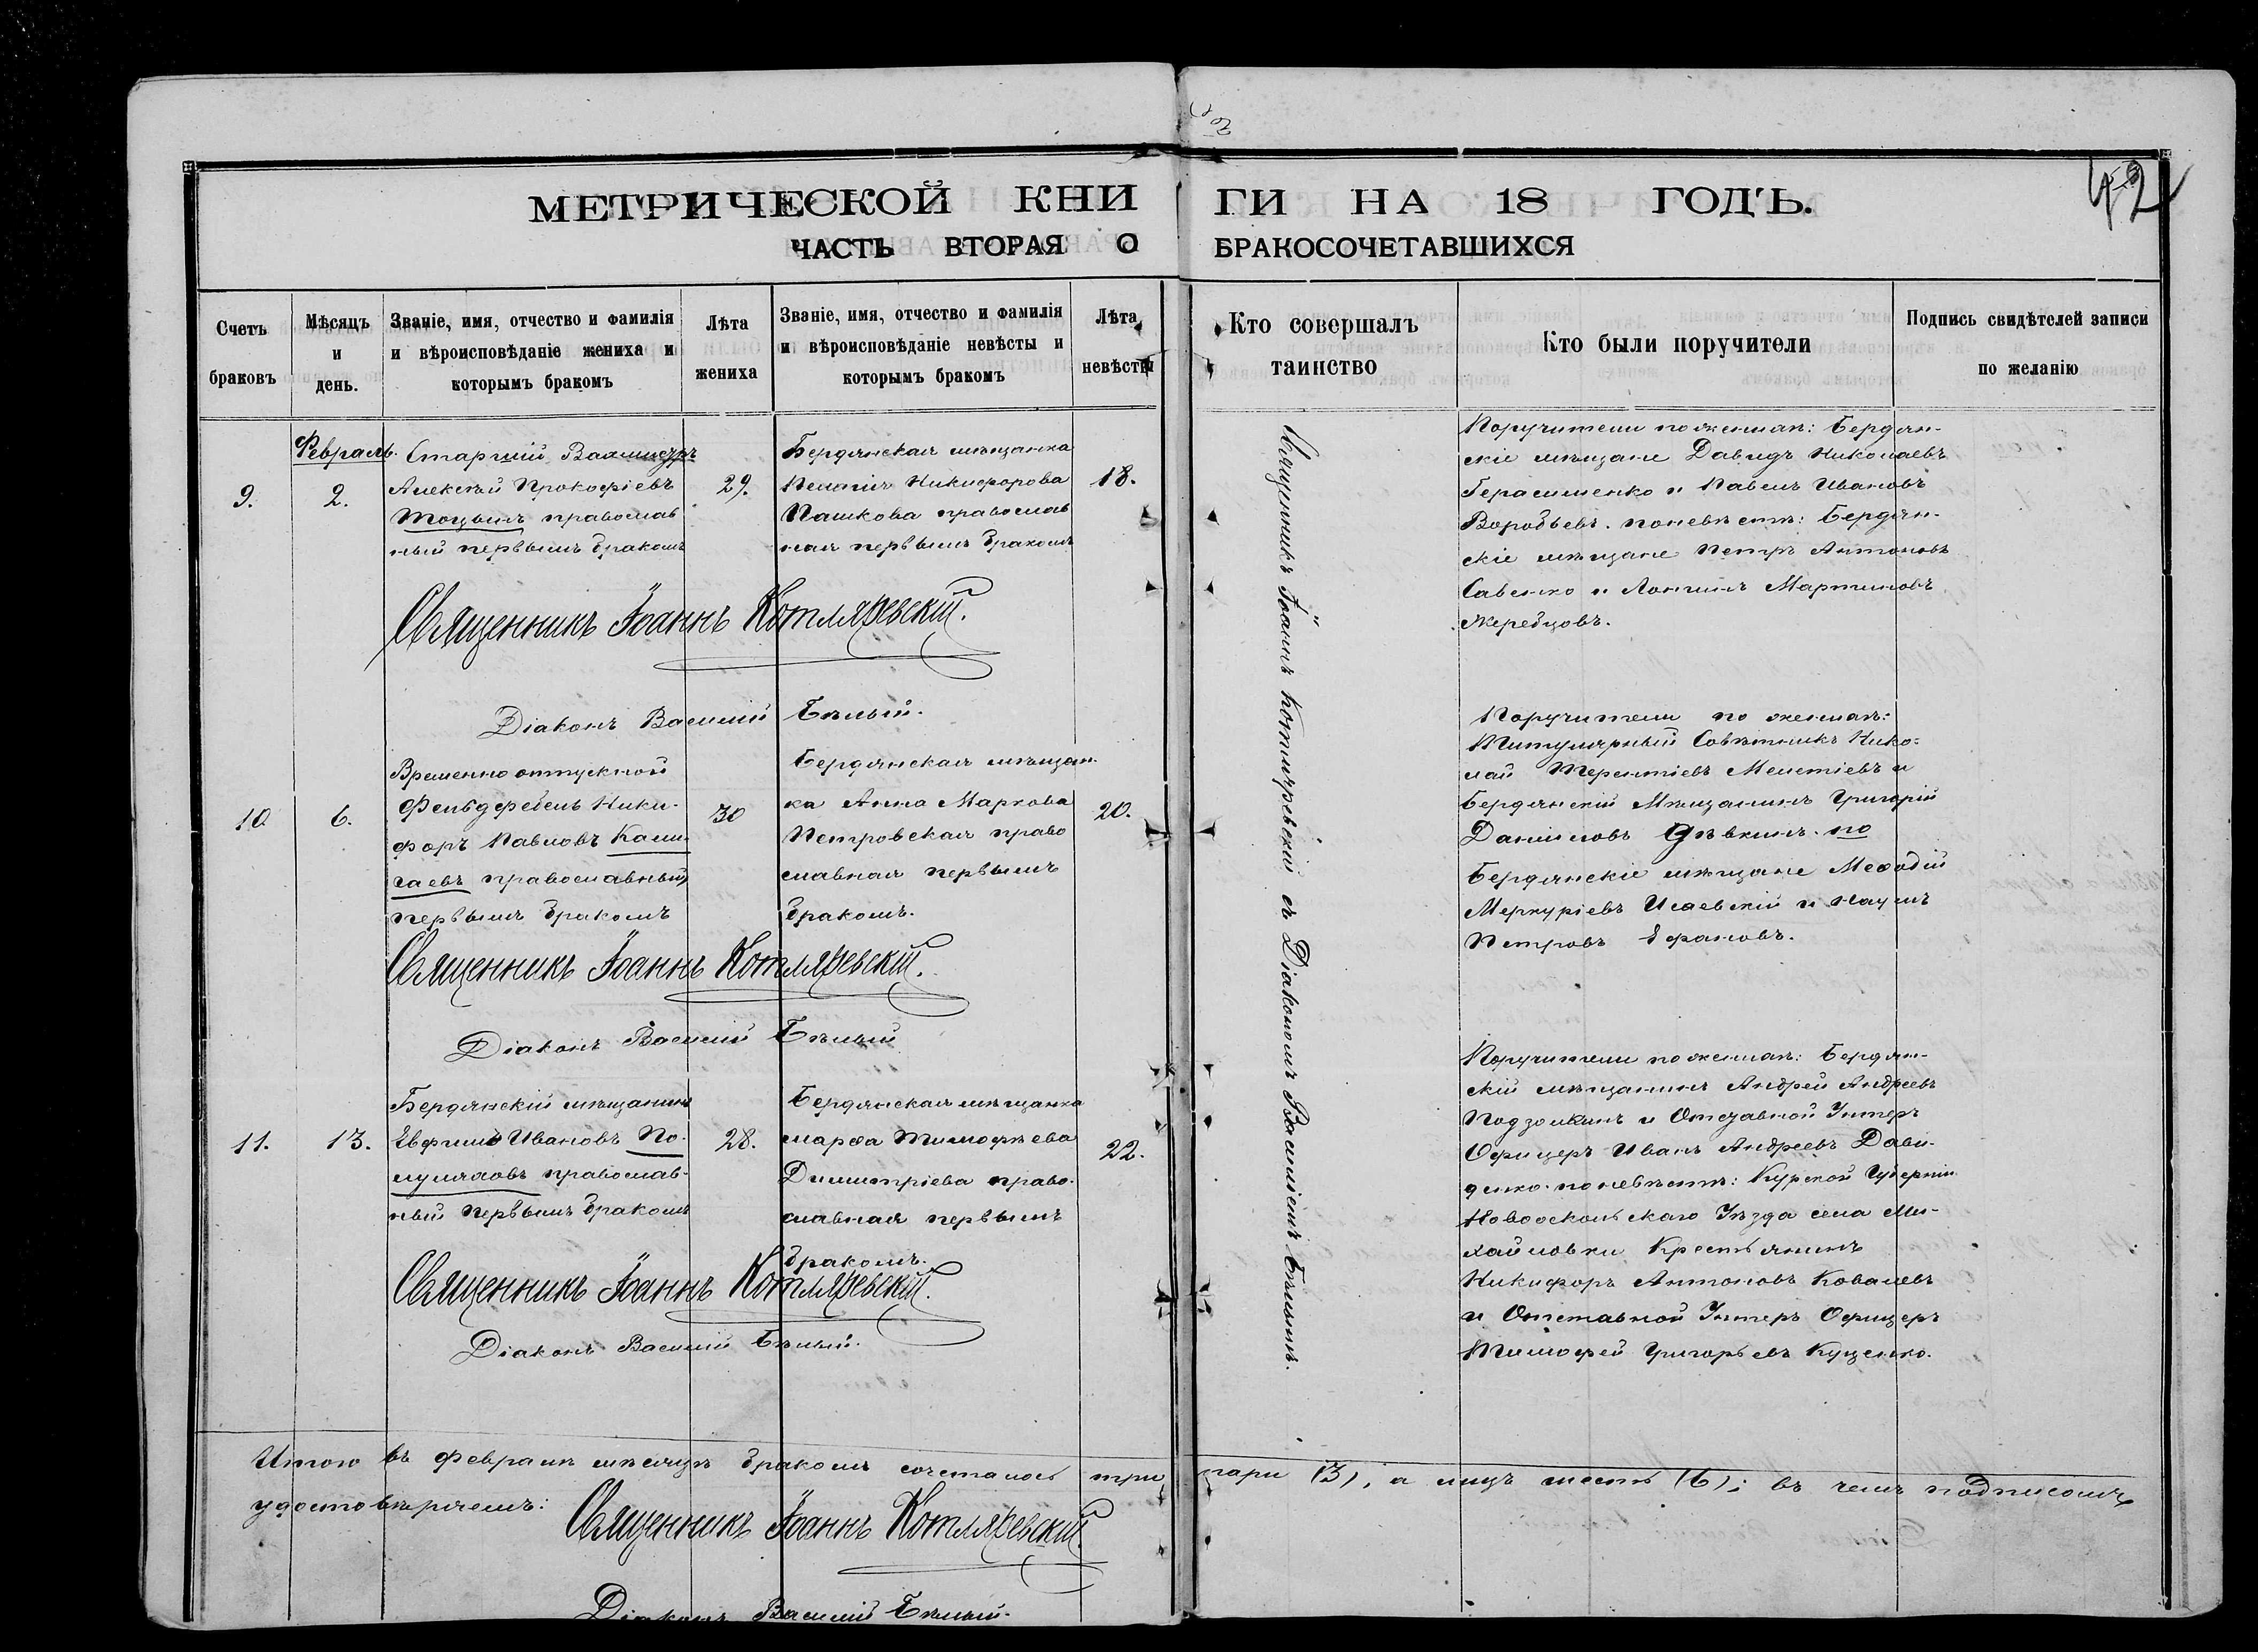 42
МЕТРИЧЕСКОЙ КНИГИ НА 18 ГОДЪ.
ЧАСТЬ ВТОРАЯ О БРАКОСОЧЕТАВШИХСЯ
Счетъ браковъ
Мѣсяцъ и день.
Званіе, имя, отчество и фамилія
и вѣроисповѣданіе жениха и
которымъ бракомъ
Лѣта жениха
Званіе, имя, отчество и фамилія
и вѣроисповѣданіе невѣсты и
которымъ бракомъ
Лѣта невѣсты
Кто совершалъ
таинство
Кто были поручители
Подпись свидѣтелей записи
по желанію
Февраль.
9.
2.
Старшій Вахмистръ
Алексѣй Прокофіевъ
православ
ный первымъ бракомъ
29.
Бердянская мѣщанка
Пелагія Никифорова
Пашкова православ
ная первымъ бракомъ
18.
Священникъ Іоаннъ Котляревскій съ Діакономъ Василіемъ Бѣлымъ.
Поручители по женихѣ: Бердян-
скіе мѣщане Давидъ Николаевъ
Герасименко и Павелъ Ивановъ
Воробьевъ. по невѣстѣ: Бердян-
скіе мѣщане Петръ Антоновъ
Савенко и Лонгинъ Мартиновъ
Жеребцовъ.
Священникъ Іоаннъ Котляревскій.
Діаконъ Василій Бѣлый.
10
6.
Временно отпускной
Фельдфебель Ники-
форъ Павловъ
православный
первымъ бракомъ
30
Бердянская мѣщан-
ка Анна Маркова
Петровская право
славная первымъ
бракомъ.
20.
Поручители по женихѣ:
Титулярный Совѣтникъ Нико-
лай Терентіевъ Мелетіевъ и
Бердянскій Мѣщанинъ Григорій
Даниловъ Дѣвкинъ. по
Бердянскіе мѣщане Меѳодій
Меркуріевъ Исаевскій и Наумъ
Петровъ Ефановъ.
Священникъ Іоаннъ Котляревскій.
Діаконъ Василій Бѣлый
11.
13.
Бердянскій мѣщанинъ
Евфимъ Ивановъ По-
православ-
ный первымъ бракомъ
28.
Бердянская мѣщанка
Марѳа Тимофѣева
Димитріева право-
славная первымъ
бракомъ.
22.
Поручители по женихѣ: Бердян-
скій мѣщанинъ Андрей Андреевъ
и Отставной Унтеръ
Офицеръ Иванъ Андреевъ Дави-
денко. по невѣстѣ: Курской Губерніи
Новооскольскаго Уѣзда села Ми-
хайловки Крестьянинъ
Никифоръ Антоновъ Ковалевъ
и Отставной Унтеръ Офицеръ
Тимофей Григорьевъ Куценко.
Священникъ Іоаннъ Котляревскій.
Діаконъ Василій Бѣлый.
Итого въ Февралѣ мѣсяцѣ бракомъ сочеталось три пары (3), а лицъ шесть (6); въ чемъ подписомъ
удостовѣряемъ:
Священникъ Іоаннъ Котляревскій.
Діаконъ Василій Бѣлый.